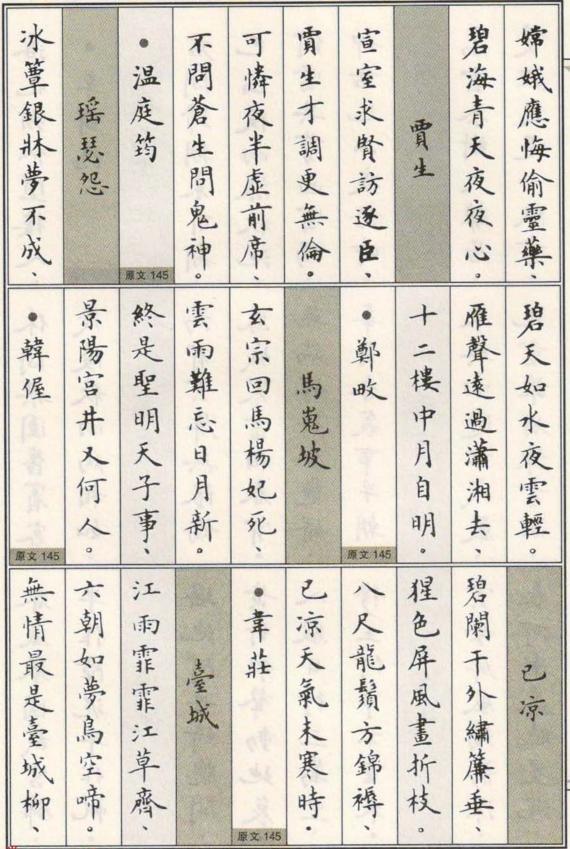 嫦娥應悔偷靈藥、
碧海青天夜夜心。
賈生
宣室求賢訪逐臣、
賈生才調更無倫。
可憐夜半虛前席、
不問蒼生問鬼神。
●溫庭筠
原文 145
瑶瑟怨
冰簟銀牀夢不成、
碧天如水夜雲輕。
雁聲遠過瀟湘去、
十二樓中月自明。
●鄭畋
原文 145
馬嵬坡
玄宗回馬楊妃死、
雲雨難忘日月新。
終是聖明天子事、
景陽宮井又何人。
●韓偓
原文 145
已凉
碧闌干外繡簾垂、
猩色屏風畫折枝。
八尺龍鬚方錦褥、
已凉天氣未寒時。
●韋莊
原文 145
臺城
江雨霏霏江草齊、
六朝如夢鳥空啼。
無情最是臺城柳、